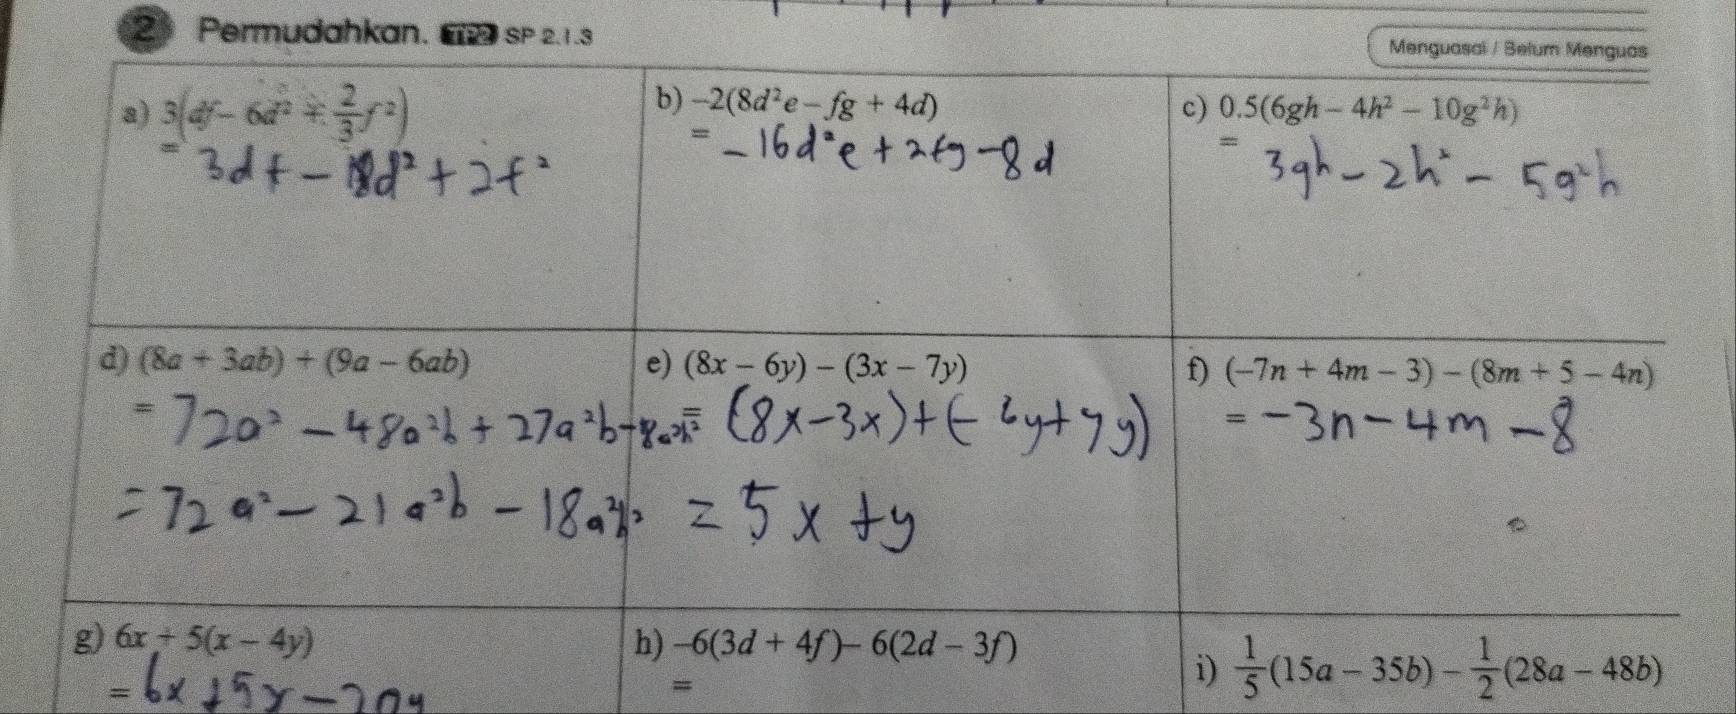 2 Permudahkan. TP2 SP 2.1.3
Menguasai / Belum Menguas
a) 3(df – 6d² + 2/3 f²)
= 3df – 18d² + 2f²
b) –2(8d²e – fg + 4d)
= –16d²e + 2fg – 8d
c) 0.5(6gh – 4h² – 10g²h)
= 3gh – 2h² – 5g²h
d) (8a + 3ab) + (9a – 6ab)
= 72a² – 48a²b + 27a²b
= 72a² – 21a²b – 18a²b²
e) (8x – 6y) – (3x – 7y)
= (8x – 3x) + (– 6y + 7y)
= 5x + y
f) (–7n + 4m – 3) – (8m + 5 – 4n)
= –3n – 4m – 8
g) 6x + 5(x – 4y)
= 6x + 5x – 20y
h) –6(3d + 4f) – 6(2d – 3f)
=
i) 1/5 (15a – 35b) – 1/2 (28a – 48b)